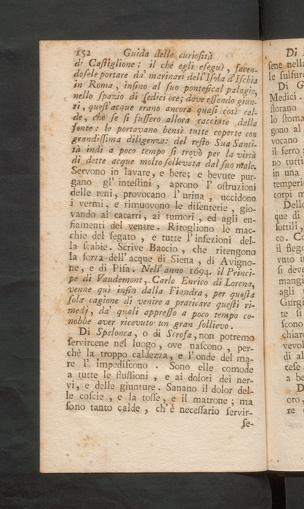 152 Guida delle curiosità
di Castiglione; il che egli eseguì, facen-
dosele portare da' marinari dell'Isola d'Ischia
in Roma, insino al suo pontefical palagio,
nello spazio di sedici ore; dove essendo giun-
ti, quest'acque erano ancora quasi così cal-
de, che se si fussero allora cacciate dalla
fonte: le portavano bensì tutte coperte con
grandissima diligenza: del resto Sua Santi-
tà indi a poco tempo si trovò per la virtù
di dette acque molto sollevata dal suo male.
Servono in lavare, e bere; e bevute pur-
gano gl' intestini, aprono l' ostruzioni
delle reni, provocano l' urina, uccidono
i vermi, e rimuovono le disenterie, gio-
vando ai catarri, ai tumori, ed agli en-
fiamenti del ventre. Ritogliono le mac-
chie del fegato, e tutte l' infezioni del-
la scabie. Scrive Baccio, che ritengono
la forza dell' acque di Siena, di Avigno-
ne, e di Pisa. Nell' anno 1694. il Princi-
pe di Vaudemont, Carlo Enrico di Lorena,
venne quì infin dalla Fiandra, per questa
sola cagione di venire a praticare questi ri-
medj, da' quali appresso a poco tempo co-
nobbe aver ricevuto un gran sollievo.
Di Spelonca, o di Scrofa, non potremo
servircene nel luogo, ove nascono, per-
chè la troppo caldezza, e l' onde del ma-
re l' impediscono. Sono elle comode
a tutte le flussioni, e ai dolori dei ner-
vi, e delle giunture. Sanano il dolor del-
le coscie, e la tosse, e il matrone; ma
sono tanto calde, ch' è necessario servir-
se-